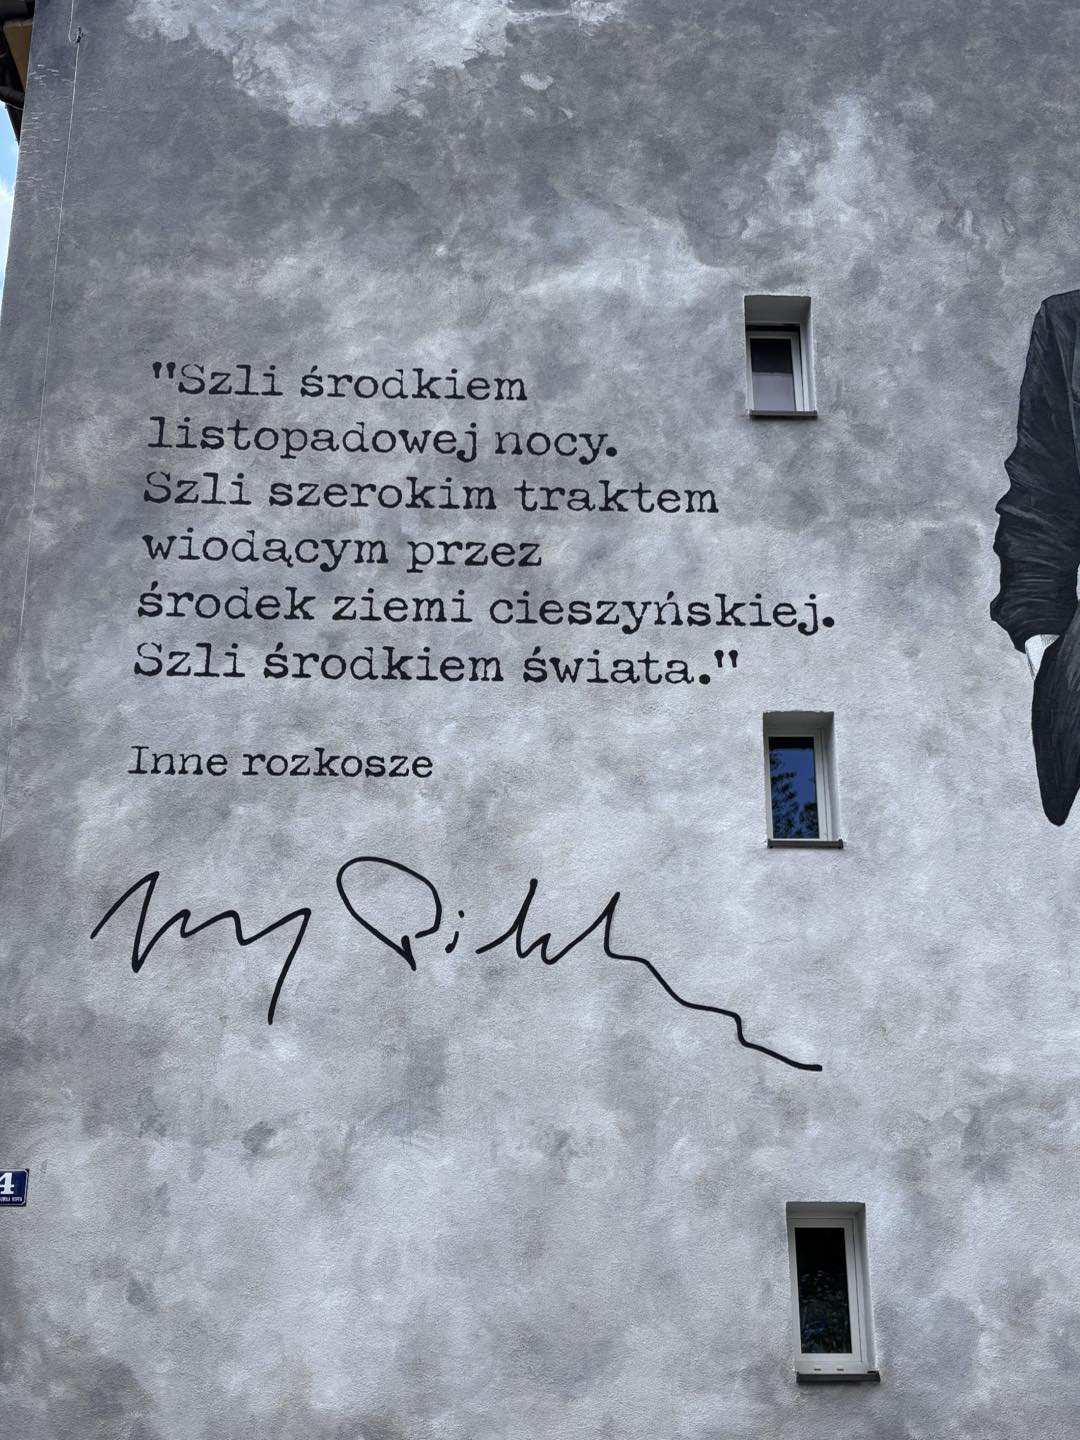 "Szli środkiem
listopadowej nocy.
Szli szerokim traktem
wiodącym przez
środek ziemi cieszyńskiej.
Szli środkiem świata."
Inne rozkosze
4